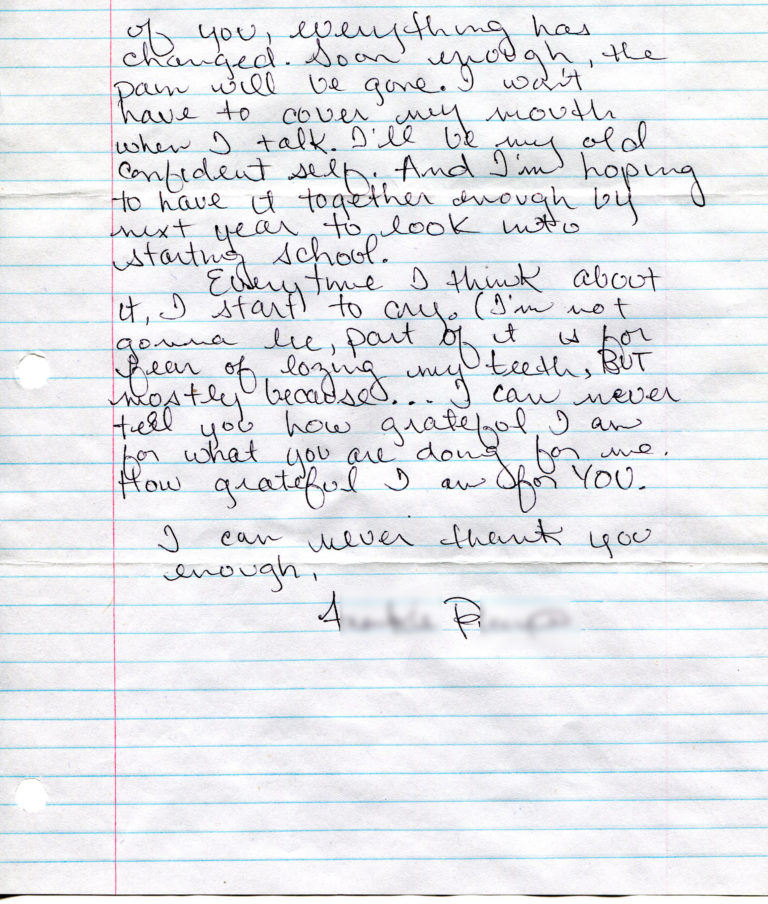 of you, everything has
changed. Soon enough, the
pain will be gone. I won't
have to cover my mouth
when I talk. I'll be my old
confident self. And I'm hoping
to have it together enough by
next year to look into
starting school.
Everytime I think about
it, I start to cry. (I'm not
gonna lie, part of it is for
fear of lozing my teeth, BUT
mostly because... I can never
tell you how grateful I am
for what you are doing for me.
How grateful I am for YOU.
I can never thank you
enough,